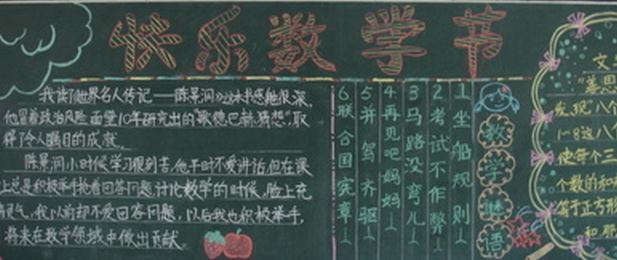 快乐数学节
我读了世界名人传记——陈景润》这本书感触很深,
他冒着政治风险 面壁10年研究出的"歌德巴赫猜想",取
得了令人瞩目的成就。
陈景润小时候学习很刻苦,他平时不爱讲话,但在课
上总是积极举手抢着回答问题,讨论数学的时候,脸上充
满灵气,我以前却不爱回答问题,以后我也积极举手,
将来在数学领域中做出贡献
6联合国宪章
5并驾齐驱
4再见吧妈妈
3马路没弯儿
2考试不作弊
1坐船规则
数学谜语
文
发现"八个
1-8这八个
使每个三
个数的和
等于正方形